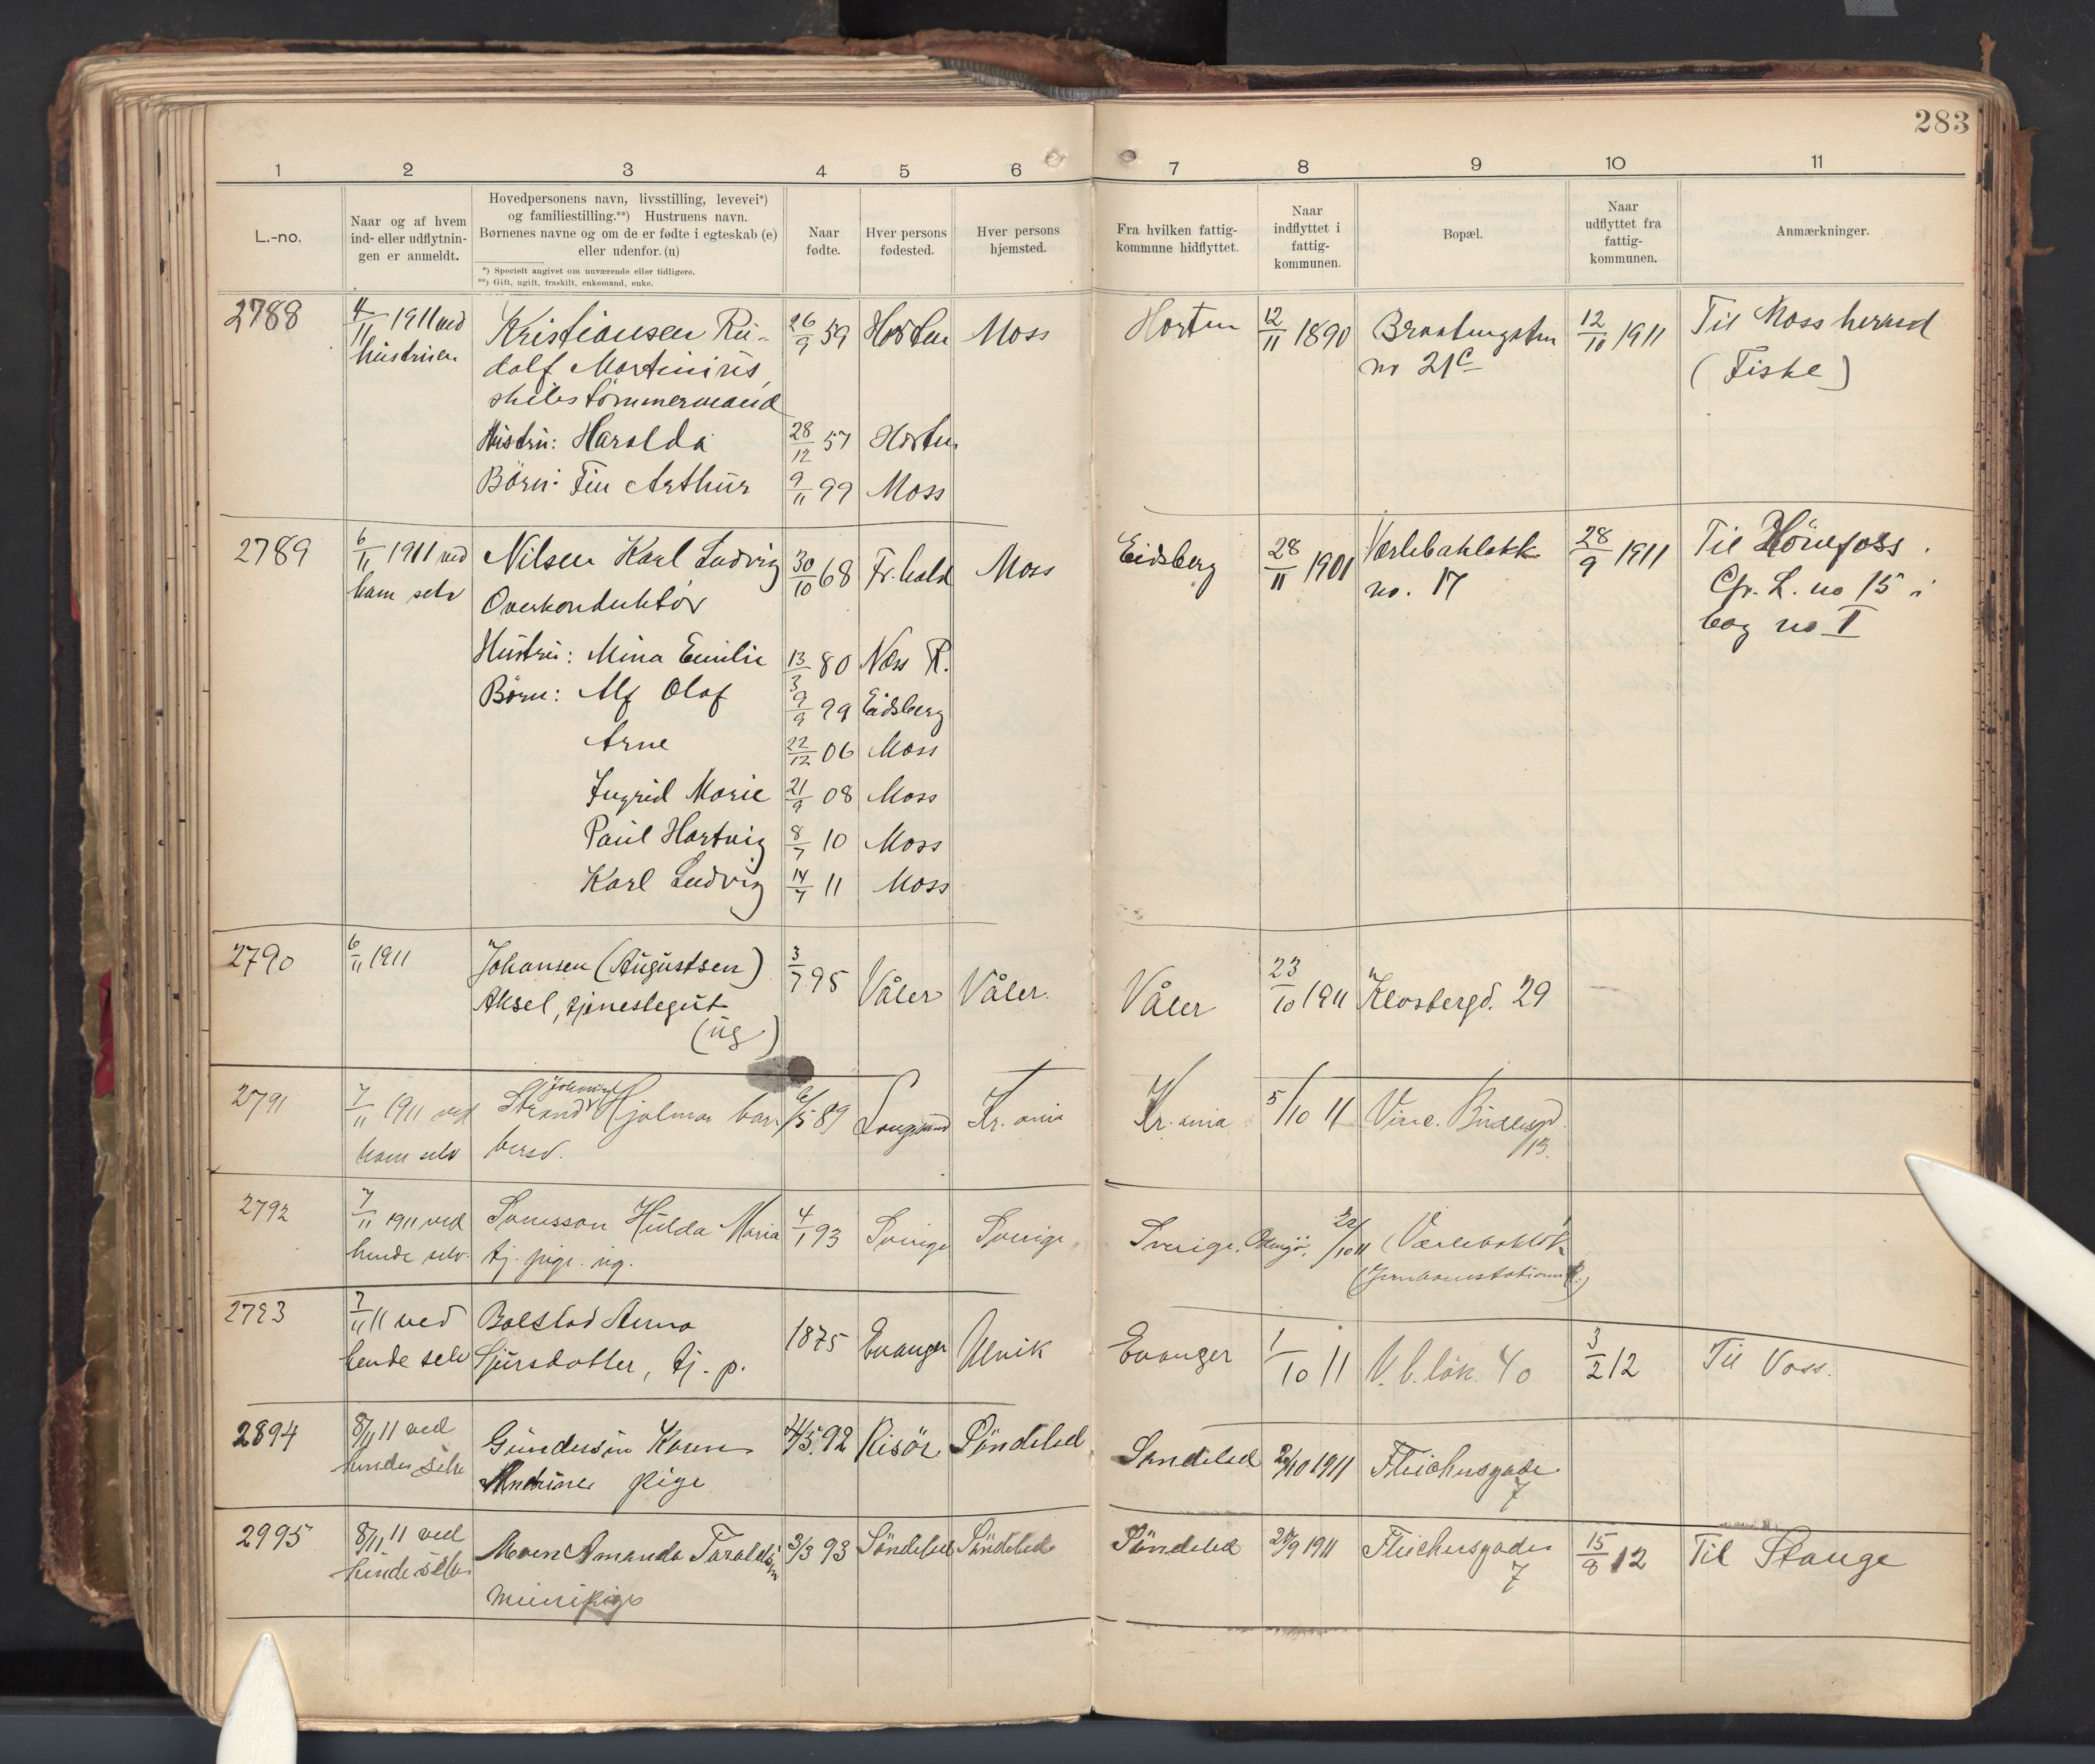 283
1 2 3 4 5 6 7 8 9 10 11
L.-no.
Naar og af hvem
ind- eller udflytnin-
gen er anmeldt.
Hovedpersonens navn, livsstilling, levevei*)
og familiestilling.**) Hustruens navn.
Børnenes navne og om de er fødte i egteskab (e)
eller udenfor. (u)
*) Specielt angivet om nuværende eller tidligere.
**) Gift, ugift, fraskilt, enkemand, enke.
Naar
fødte.
Hver persons
fødested.
Hver persons
hjemsted.
Fra hvilken fattig-
kommune hidflyttet.
Naar
indflyttet i
fattig-
kommunen.
Bopæl.
Naar
udflyttet fra
fattig-
kommunen.
Anmærkninger.
2788 4/11 1911 ved Kristiansen Ru- 26/9 59 Horten Moss Horten 12/11 1890 12/10 1911 Til Moss herred
hustruen dolf Martinius, no 21c (Fiske)
skibstømmermand
Hustru: Haralda 28/12 57 Horten
Børn: Fin Arthur 9/11 99 Moss
2789 6/11 1911 ved Nilsen Karl Ludvig 30/10 68 Fr.hald Moss Eidsberg 28/11 1901 28/9 1911 Til Hönefoss.
ham selv Overkonduktør no. 17 Cfr. L. no 15 i
bog no II
Hustru: Mina Emilie 13/3 80 Næs R.
Børn: Alf Olaf 9/9 99 Eidsberg
Arne 22/12 06 Moss
Ingrid Marie 21/9 08 Moss
Paul Hartvig 8/7 10 Moss
Karl Ludvig 14/7 11 Moss
2790 6/11 1911 Johansen (Augustsen) 3/7 95 Våler Våler. Våler 23/10 1911 Klosbergd. 29
Aksel, tjenestegut
(ug)
2791 7/11 1911 ved Strand Hjalmar bar- 6/5 89 Langesund Kr.ania Kr.ania 5/10 11 Vinc. Budesgd.
ham selv bersv. 13.
2792 7/11 1911 ved Svensson Hulda Maria 4/1 93 Sverige Sverige Sverige, 22/10 11 Værlebakløk.
hende selv. tj. pige. ug. (Jernbanestationen)
2793 7/11 11 ved Bolstad Anna 1875 Evanger Ulvik Evanger 1/10 11 V.b.løk. 40 3/2 12 Til Voss.
hende selv Sjursdotter, tj. p.
2894 8/11 11 ved Gundersen Karen 24/5 92 Risör Söndeled Söndeled 2/10 1911 Fleichersgade
hende selv Andrine pige 7
2995 8/11 11 ved Moen Amanda Taraldsen 3/3 93 Söndeled Söndeled Söndeled 28/9 1911 Fleichersgade 15/8 12 Til Stange
hende selv meieripige 7